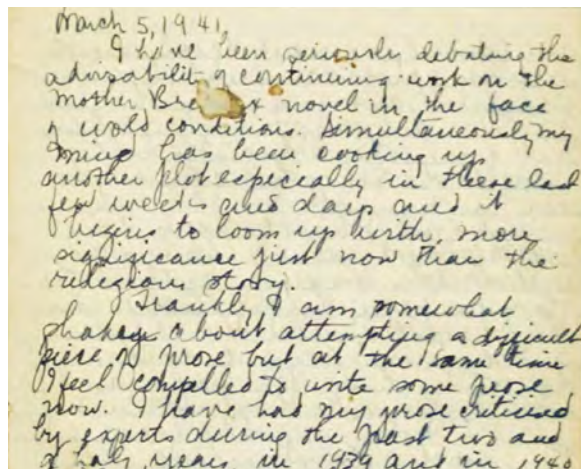 March 5, 1941
I have been seriously debating the
advisability of continuing work on the
Mother Br novel in the face
of world conditions. Simultaneously my
mind has been cooking up
another plot especially in these last
few weeks and days and it
begins to loom up with more
significance just now than the
religious story.
Frankly I am somewhat
shakey about attempting a difficult
piece of prose but at the same time
I feel compelled to write some prose
now. I have had my prose criticised
by experts during the past two and
a half years in 1939 and in 1940